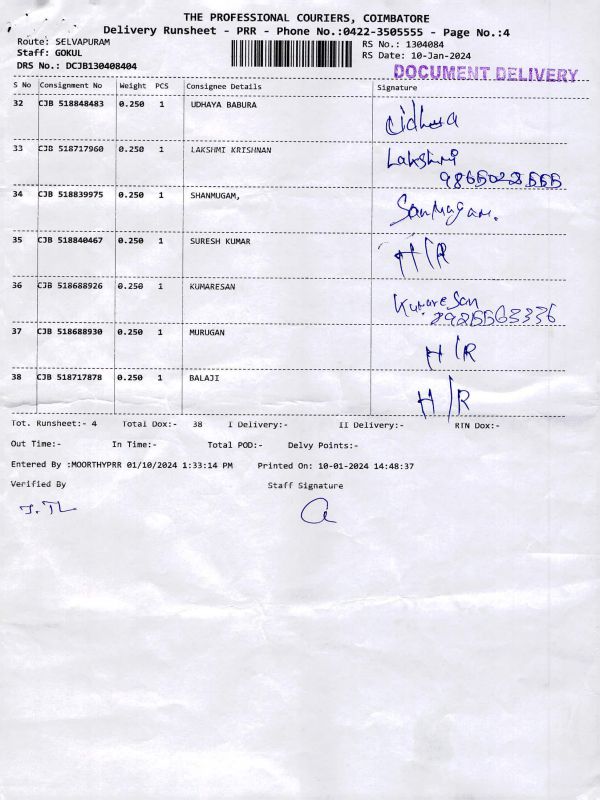 THE PROFESSIONAL COURIERS, COIMBATORE
Delivery Runsheet - PRR - Phone No.:0422-3505555 - Page No.:4
Route: SELVAPURAM
Staff: GOKUL
DRS No.: DCJB130408404
RS No.: 1304084
RS Date: 10-Jan-2024
DOCUMENT DELIVERY
S No Consignment No Weight PCS Consignee Details Signature
32 CJB 518848483 0.250 1 UDHAYA BABURA
33 CJB 518717960 0.250 1 LAKSHMI KRISHNAN Lakshmi
34 CJB 518839975 0.250 1 SHANMUGAM, Sanmugam.
35 CJB 518840467 0.250 1 SURESH KUMAR H/R
36 CJB 518688926 0.250 1 KUMARESAN Kumaresan
37 CJB 518688930 0.250 1 MURUGAN H/R
38 CJB 518717878 0.250 1 BALAJI H/R
Tot. Runsheet:- 4 Total Dox:- 38 I Delivery:- II Delivery:- RTN Dox:-
Out Time:- In Time:- Total POD:- Delvy Points:-
Entered By :MOORTHYPRR 01/10/2024 1:33:14 PM Printed On: 10-01-2024 14:48:37
Verified By Staff Signature